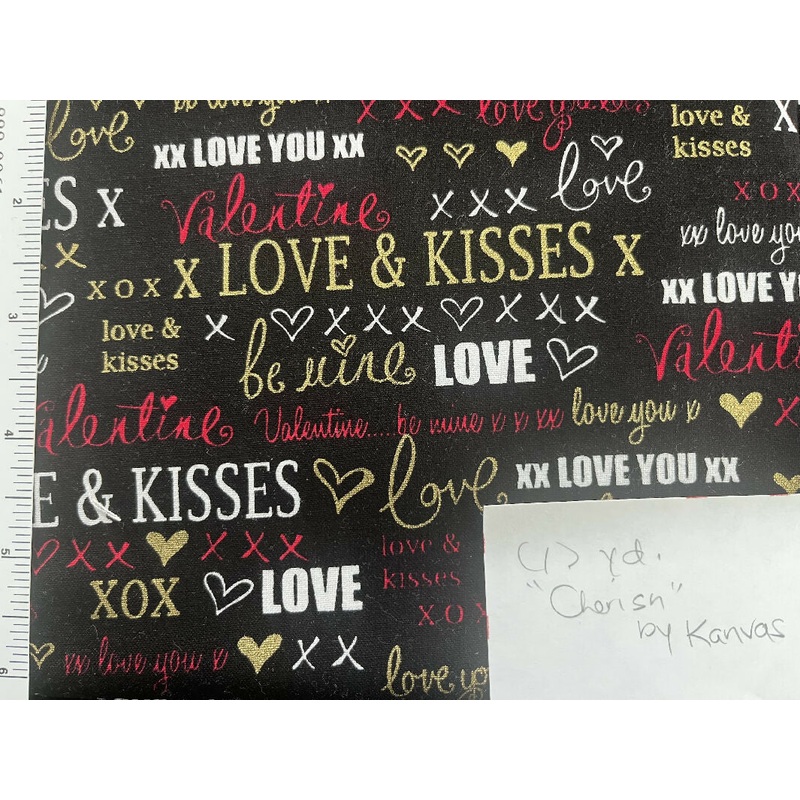 love xx love you x x x x love you
love &
kisses
xx LOVE YOU xx
ES x valentine x x x love
x o x
xx love you
x o x x LOVE & KISSES x
xx LOVE Y
love &
kisses
x x x x x x x
be mine LOVE
valent
alentine
Valentine.....be mine x x xx
love you x
x
E & KISSES
love
xx LOVE YOU xx
x x x x x
love &
kisses
XOX LOVE
x o x
xx love you x
x x
love yo
(1) yd.
"Cherish"
by Kanvas
2
3
4
5
6